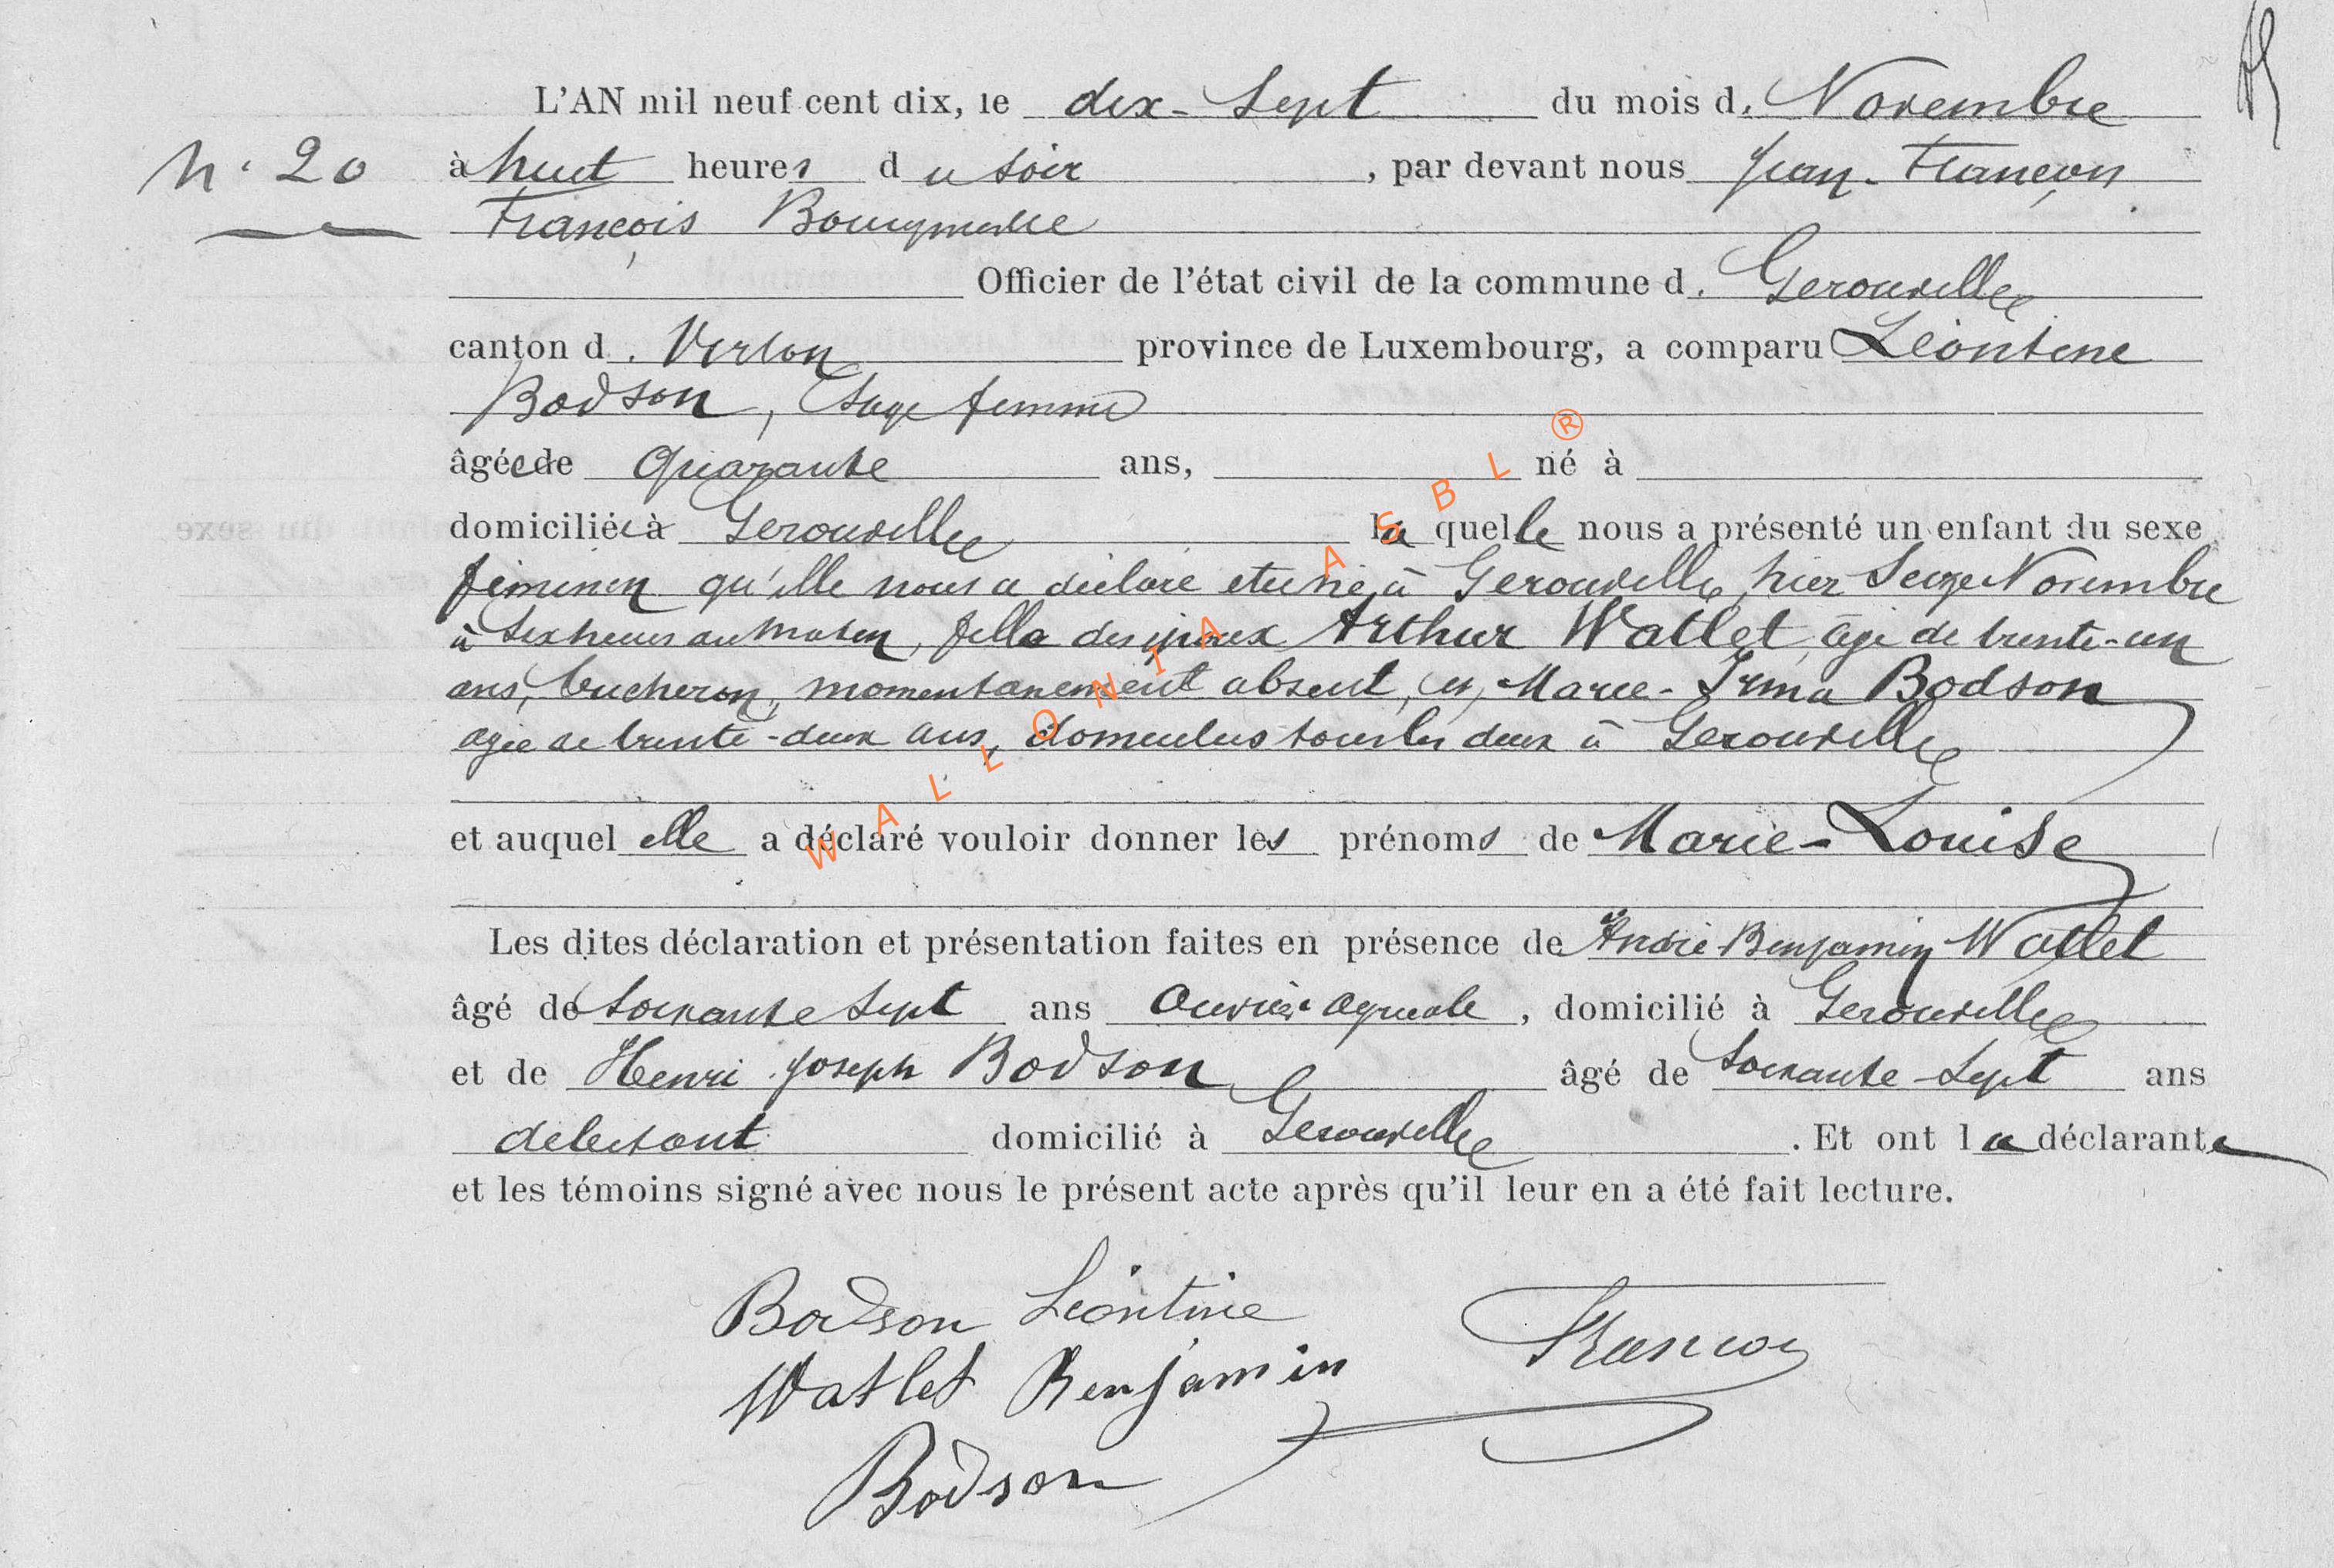 L'AN mil neuf cent dix, le dix-Sept du mois d. Novembre
N. 20 à huit heures du soir, par devant nous Jean-François
François Bourgmestre
Officier de l'état civil de la commune d. Gerouville
canton d. Virton province de Luxembourg, a comparu Léontine
Bodson, Sage femme
âgée de Quarante ans, né à
domiciliée à Gerouville laquelle nous a présenté un enfant du sexe
féminin qu'elle nous a déclaré etre né à Gerouville, hier Seize Novembre
à Six heures du Matin, fille des époux Arthur Watlet, âgé de trente-un
ans, bucheron, momentanement absent, et Marie-Irma Bodson
agée de trente-deux ans, domiciliés tous les deux à Gerouville
et auquel elle a déclaré vouloir donner les prénoms de Marie-Louise
Les dites déclaration et présentation faites en présence de André-Benjamin Watlet
âgé de Soixante Sept ans Ouvrier agricole, domicilié à Gerouville
et de Henri Joseph Bodson âgé de Soixante-Sept ans
domicilié à Gerouville. Et ont la déclarante
et les témoins signé avec nous le présent acte après qu'il leur en a été fait lecture.
Bodson Léontine
François
Watlet Benjamin
Bodson
WALLONIA ASBL ®